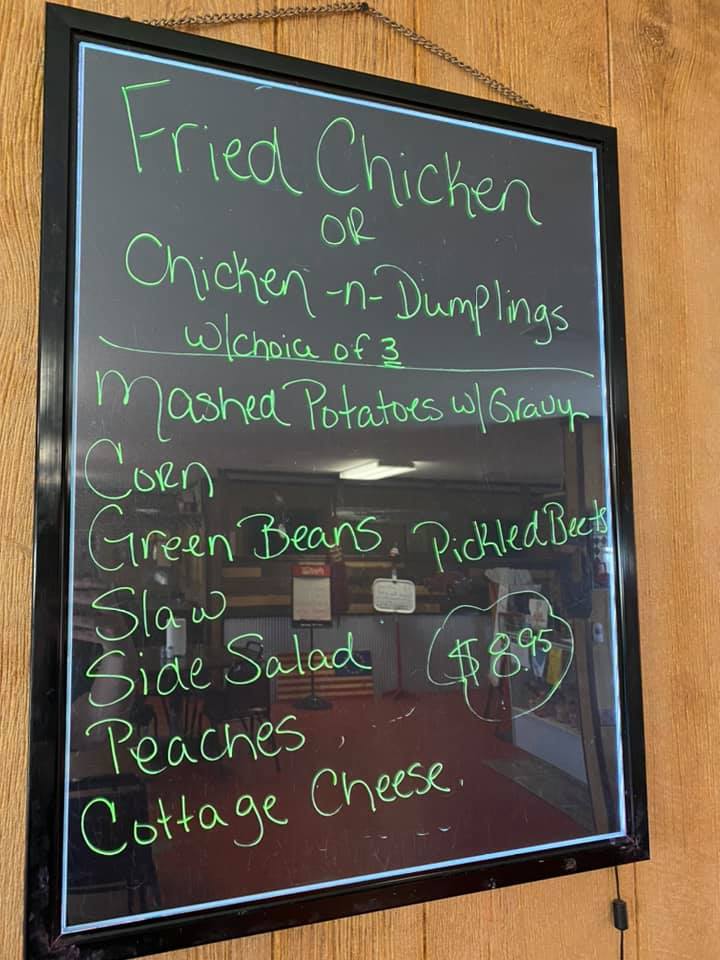 Fried Chicken
OR
Chicken-n-Dumplings
w/choice of 3
Mashed Potatoes w/Gravy
Corn
Green Beans
Pickled Beets
Slaw
Side Salad
$8.95
Peaches
Cottage Cheese.